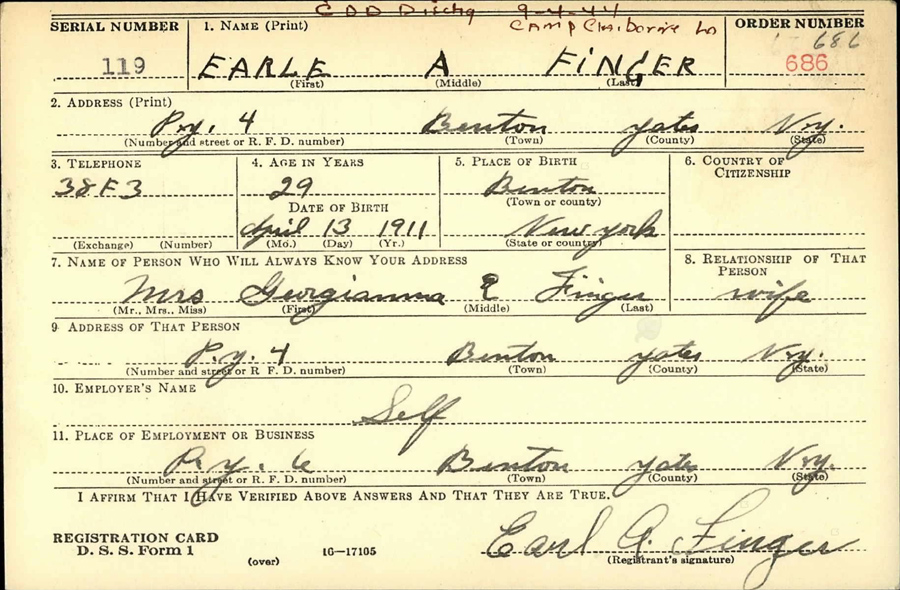 CDD Dischg 9-4-44
Camp Claiborne La
SERIAL NUMBER 1. NAME (Print) ORDER NUMBER
686
119 EARLE A FINGER 686
(First) (Middle) (Last)
2. ADDRESS (Print)
P.y. 4 Benton Yates N.y.
(Number and street or R. F. D. number) (Town) (County) (State)
3. TELEPHONE 4. AGE IN YEARS 5. PLACE OF BIRTH 6. COUNTRY OF CITIZENSHIP
38F3 29 Benton
DATE OF BIRTH (Town or county)
April 13 1911 New york
(Exchange) (Number) (Mo.) (Day) (Yr.) (State or country)
7. NAME OF PERSON WHO WILL ALWAYS KNOW YOUR ADDRESS 8. RELATIONSHIP OF THAT PERSON
Mrs Georgianna E Finger wife
(Mr., Mrs., Miss) (First) (Middle) (Last)
9. ADDRESS OF THAT PERSON
P.y. 4 Benton Yates N.y.
(Number and street or R. F. D. number) (Town) (County) (State)
10. EMPLOYER'S NAME
Self
11. PLACE OF EMPLOYMENT OR BUSINESS
Benton Yates N.y.
(Number and street or R. F. D. number) (Town) (County) (State)
I AFFIRM THAT I HAVE VERIFIED ABOVE ANSWERS AND THAT THEY ARE TRUE.
REGISTRATION CARD
D. S. S. Form 1 (over) 16-17105
Earl A. Finger
(Registrant's signature)